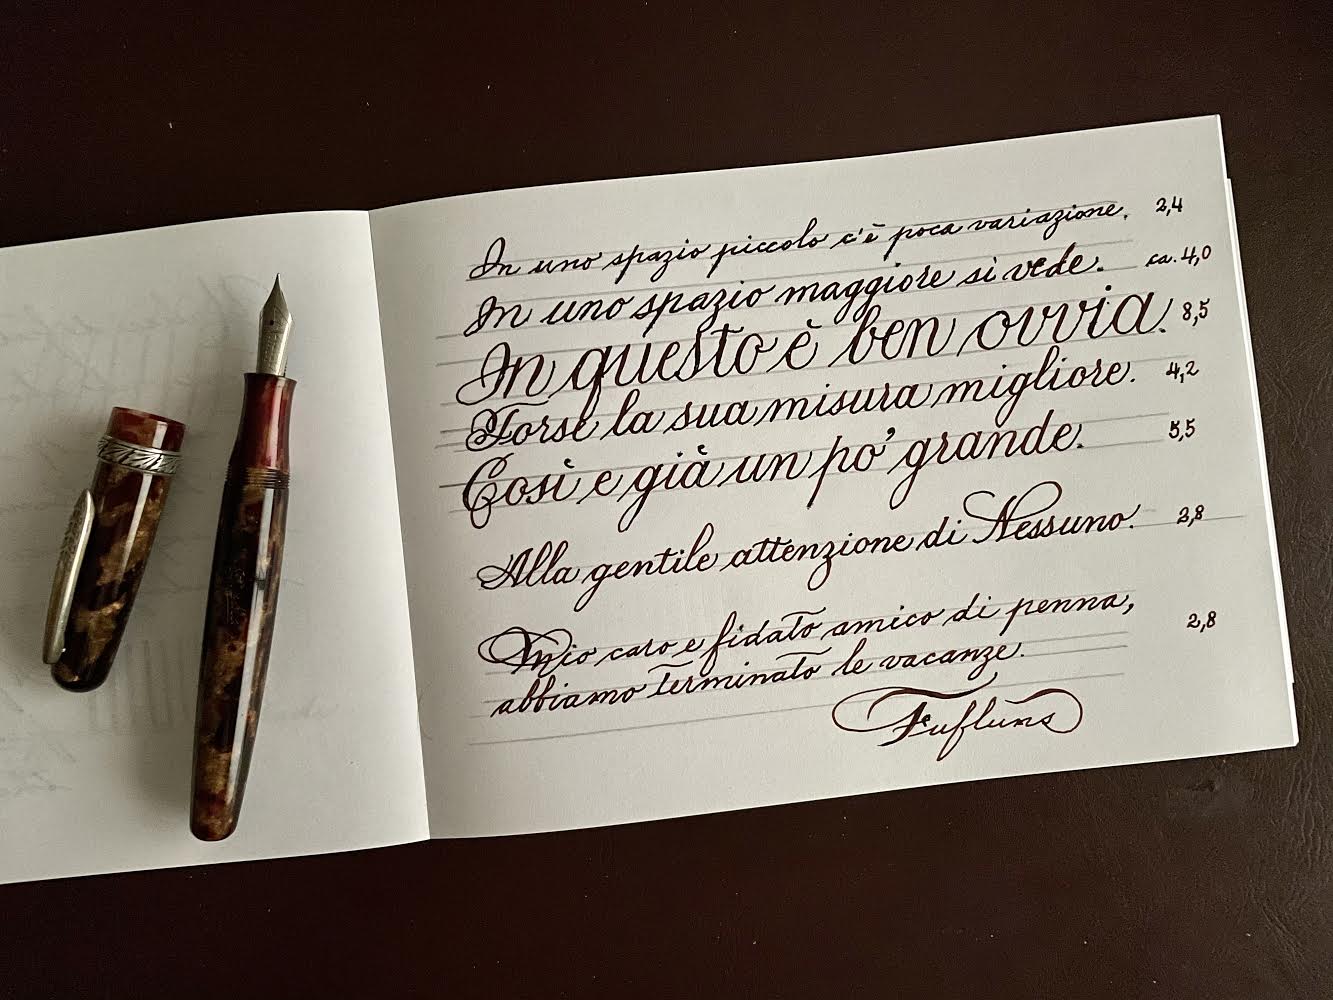 In uno spazio piccolo c'è poca variazione. 2,4
In uno spazio maggiore si vede. ca. 4,0
In questo è ben ovvia. 8,5
Forse la sua misura migliore. 4,2
Così e già un po' grande. 5,5
Alla gentile attenzione di Nessuno. 2,8
Mio caro e fidato amico di penna, 2,8
abbiamo terminato le vacanze.
Fufluns